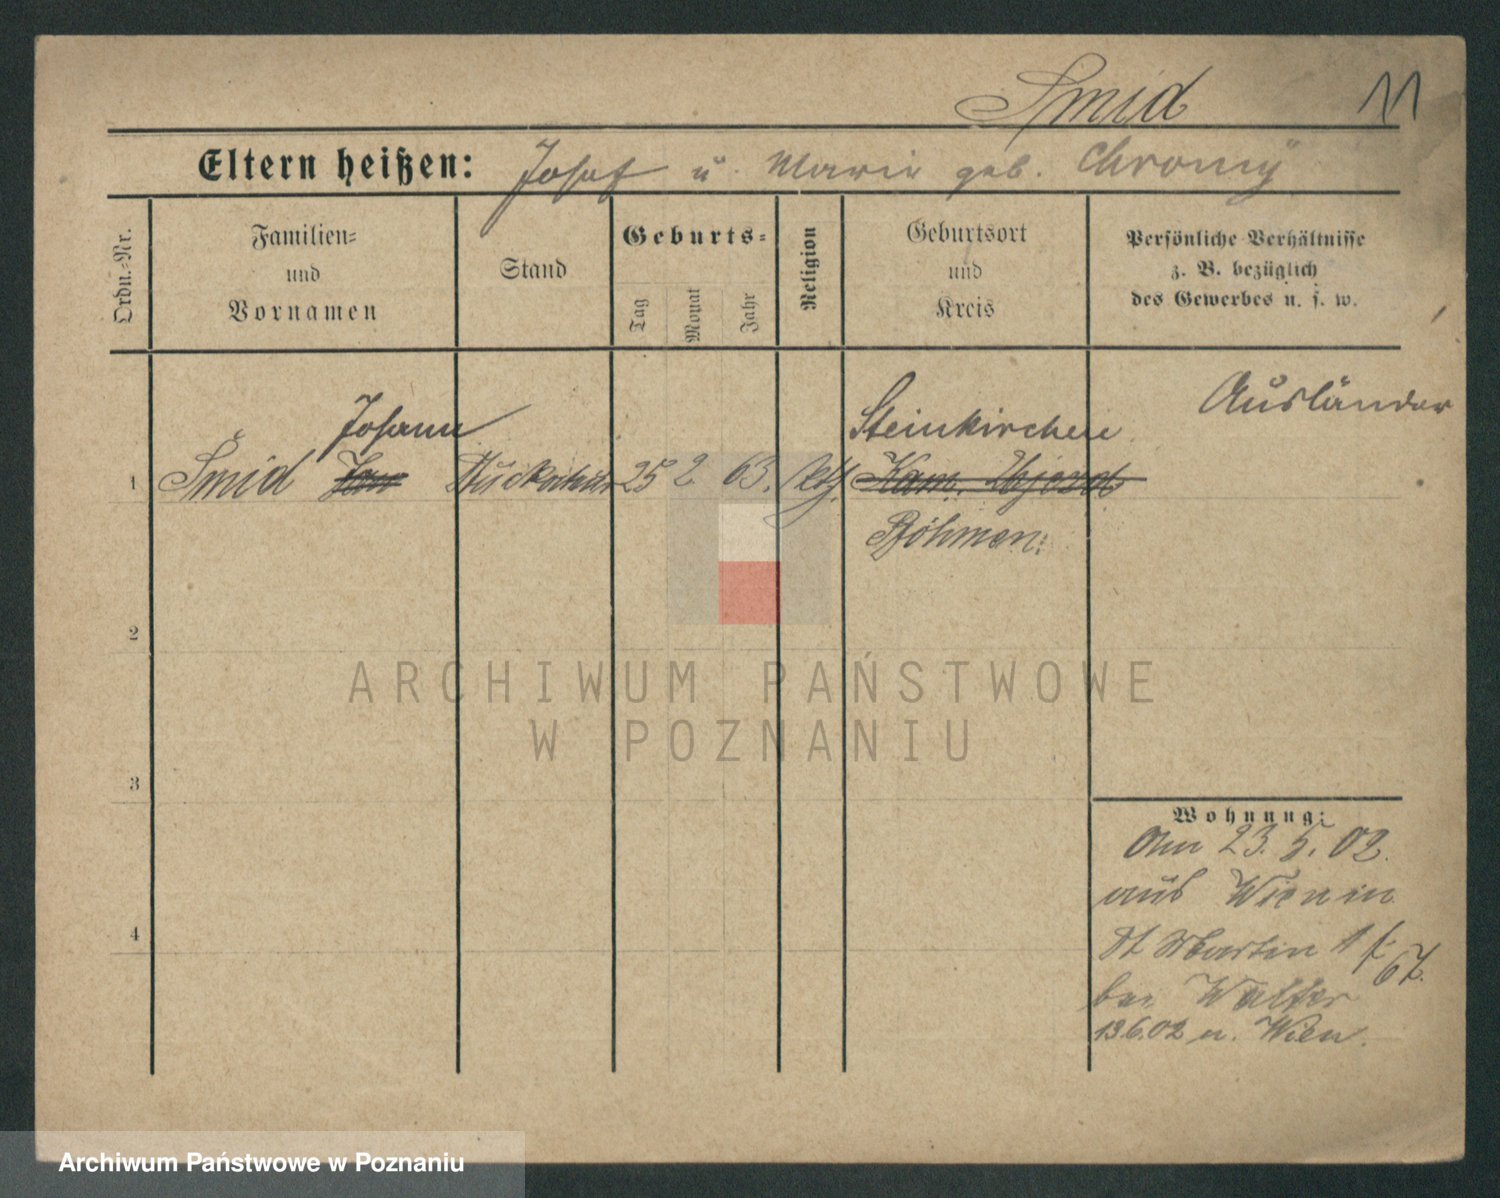 Smid 11
Eltern heißen: Josef u. Marie geb. Chromý
Ordn.-Nr.
Familien-
und
Vornamen
Stand
Geburts-
Tag
Monat
Jahr
Religion
Geburtsort
und
Kreis
Persönliche Verhältnisse
z. B. bezüglich
des Gewerbes u. s. w.
Johann
Steinkirchen
Ausländer
1 Šmid Jan Stuckateur 25 2. 63. kth. Kam. Ujezd
Böhmen.
2
3
4
Wohnung:
Am 23. 5. 02.
aus Wien in
St Martin
67.
bei Walter
13.6.02 n. Wien.
ARCHIWUM PAŃSTWOWE
W POZNANIU
Archiwum Państwowe w Poznaniu